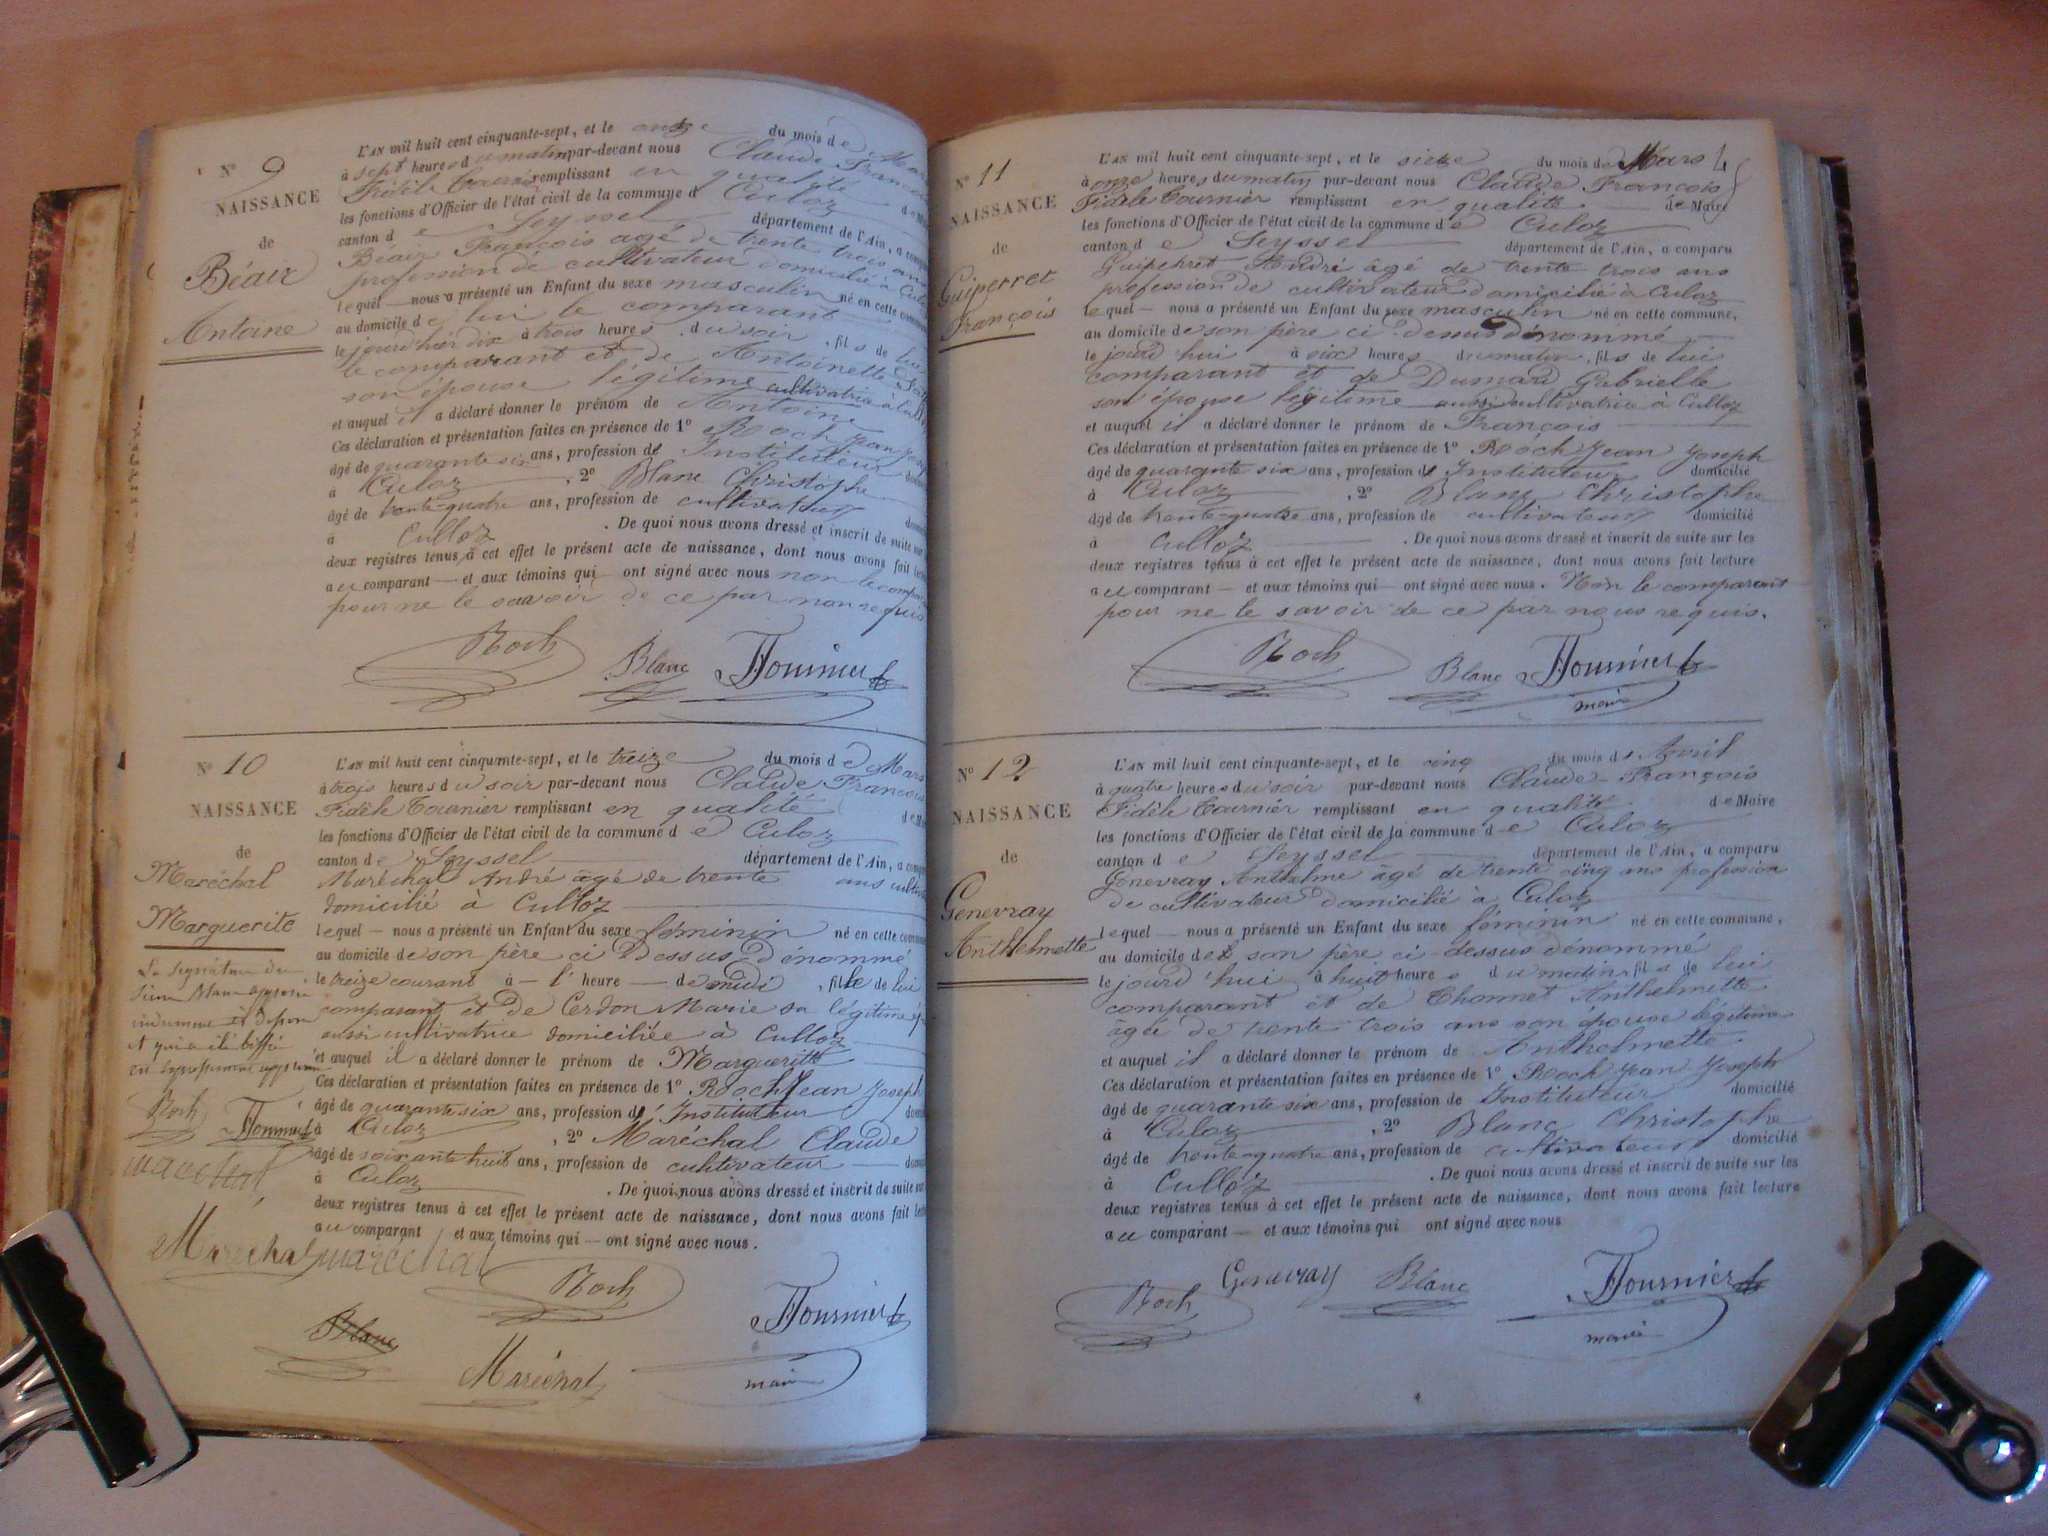 N° 9
NAISSANCE
de
Béair
Antoine
L'AN mil huit cent cinquante-sept, et le onze du mois de
à sept heures du matin par-devant nous Claude François
Fidèle Tournier remplissant en qualité de
les fonctions d'Officier de l'état civil de la commune de Culoz
canton de Seyssel département de l'Ain, a
Béair François agé de trente trois ans
profession de cultivateur domicilié à
lequel — nous a présenté un Enfant du sexe masculin né en cette
au domicile de lui le comparant
le jourd'hier dix à trois heures du soir, fils de lui
le comparant et de Antoinette
son épouse légitime cultivatrice à
et auquel il a déclaré donner le prénom de Antoine
Ces déclaration et présentation faites en présence de 1° Roch Jean
âgé de quarante six ans, profession de Instituteur
à Culoz, 2° Blanc Christophe
âgé de trente-quatre ans, profession de cultivateur
à Culloz. De quoi nous avons dressé et inscrit de suite sur
deux registres tenus à cet effet le présent acte de naissance, dont nous avons fait
au comparant — et aux témoins qui ont signé avec nous non le
pour ne le savoir de ce par nous requis
Roch Blanc Tournier
N° 10
NAISSANCE
de
Maréchal
Marguerite
L'AN mil huit cent cinquante-sept, et le treize du mois de Mars
à trois heures du soir par-devant nous Claude François
Fidèle Tournier remplissant en qualité de
les fonctions d'Officier de l'état civil de la commune de Culoz
canton de Seyssel département de l'Ain, a
Maréchal André âgé de trente ans
domicilié à Culloz
lequel — nous a présenté un Enfant du sexe féminin né en cette
au domicile de son père ci dessus dénommé
le treize courant à — l'heure — de midi, fille de lui
comparant et de Cerdon Marie sa légitime
aussi cultivatrice domiciliée à Culloz
et auquel il a déclaré donner le prénom de Margueritte
Ces déclaration et présentation faites en présence de 1° Roch Jean Joseph
âgé de quarante six ans, profession de Instituteur
à Culoz, 2° Maréchal Claude
âgé de soixante huit ans, profession de cultivateur
à Culoz. De quoi nous avons dressé et inscrit de suite
deux registres tenus à cet effet le présent acte de naissance, dont nous avons fait
au comparant et aux témoins qui — ont signé avec nous.
Roch Tournier
marechal
Marechal marechal Roch
Blanc Maréchal Tournier
maire
N° 11
NAISSANCE
de
Guiperret
François
L'AN mil huit cent cinquante-sept, et le sieze du mois de Mars
à onze heures du matin par-devant nous Claude François
Fidèle Tournier remplissant en qualité de Maire
les fonctions d'Officier de l'état civil de la commune de Culoz
canton de Seyssel département de l'Ain, a comparu
Guiperret André âgé de trente trois ans
profession de cultivateur domicilié à Culoz
lequel — nous a présenté un Enfant du sexe masculin né en cette commune,
au domicile de son père ci dessus dénommé
le jourd'hui à six heures du matin, fils de lui
comparant et de Dumard Gabrielle
son épouse légitime aussi cultivatrice à Culloz
et auquel il a déclaré donner le prénom de François
Ces déclaration et présentation faites en présence de 1° Roch Jean Joseph
âgé de quarante six ans, profession de Instituteur domicilié
à Culoz, 2° Blanc Christophe
âgé de trente-quatre ans, profession de cultivateur domicilié
à Culloz. De quoi nous avons dressé et inscrit de suite sur les
deux registres tenus à cet effet le présent acte de naissance, dont nous avons fait lecture
au comparant — et aux témoins qui — ont signé avec nous. Non le comparant
pour ne le savoir de ce par nous requis.
Roch Blanc Tournier
maire
N° 12
NAISSANCE
de
Genevray
Anthelmette
L'AN mil huit cent cinquante-sept, et le cinq du mois d'Avril
à quatre heures du soir par-devant nous Claude-François
Fidèle Tournier remplissant en qualité de Maire
les fonctions d'Officier de l'état civil de la commune de Culoz
canton de Seyssel département de l'Ain, a comparu
Genevray Anthelme âgé de trente cinq ans profession
de cultivateur domicilié à Culoz
lequel — nous a présenté un Enfant du sexe féminin né en cette commune,
au domicile de son père ci-dessus dénommé
le jourd'hui à huit heures du matin, fils de lui
comparant et de Thonnet Anthelmette
âgée de trente trois ans son épouse légitime
et auquel il a déclaré donner le prénom de Anthelmette
Ces déclaration et présentation faites en présence de 1° Roch Jean Joseph
âgé de quarante six ans, profession de Instituteur domicilié
à Culoz, 2° Blanc Christophe
âgé de trente-quatre ans, profession de cultivateur domicilié
à Culloz. De quoi nous avons dressé et inscrit de suite sur les
deux registres tenus à cet effet le présent acte de naissance, dont nous avons fait lecture
au comparant — et aux témoins qui ont signé avec nous
Roch Genevray Blanc Tournier
maire